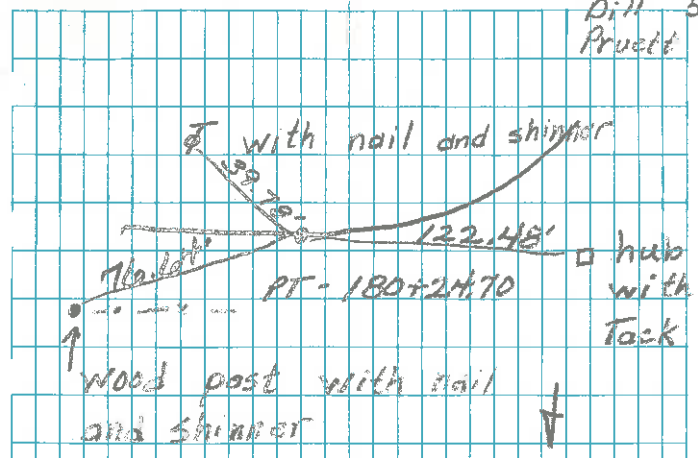 Pruett
with nail and shinner
38.79
122.48'
hub
with
Tack
PT - 180+24.70
Wood post with nail
and shinner